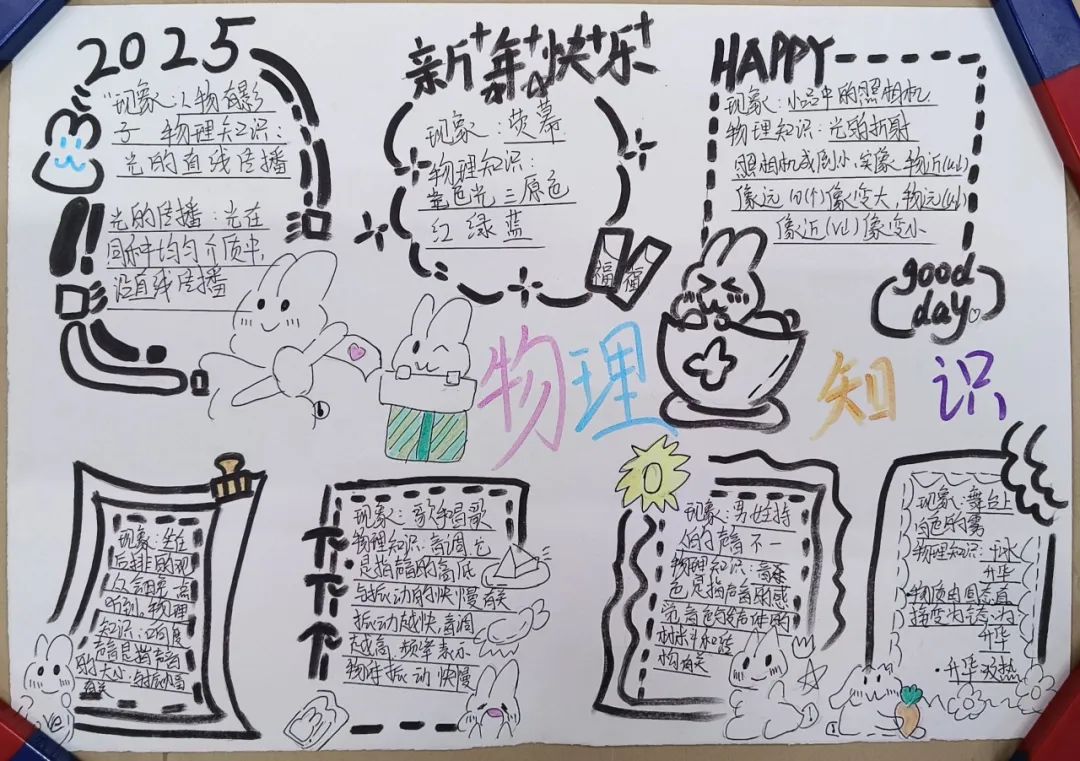 2025
现象:人物有影
子 物理知识:
光的直线传播
光的传播:光在
同种均匀介质中,
沿直线传播
新年快乐
现象:荧幕
物理知识:
色光三原色
红绿蓝
福 福
HAPPY
现象:小品中的照相机
物理知识:光的折射
照相机成倒小实像,物近(u↓)
像远(v↑)像变大,物远(u↑)
像近(v↓)像变小
good
day
物理知识
现象:坐在
后排的观
众会
听到,物理
知识:响度
声音是指声音
的大小,与振幅
有关
现象:歌手唱歌
物理知识:音调它
是指声音的高低
与振动的快慢有关
振动越快,音调
越高 频率表示
物体振动快慢
现象:男女主持
人的声音不一
物理知识:音
色是指声音的感
觉,音色与发声体的
材料和结
构有关
现象:舞台上
白色的雾
物理知识:干冰
升华
物质由固态直
接变为气态为
升华
·升华吸热